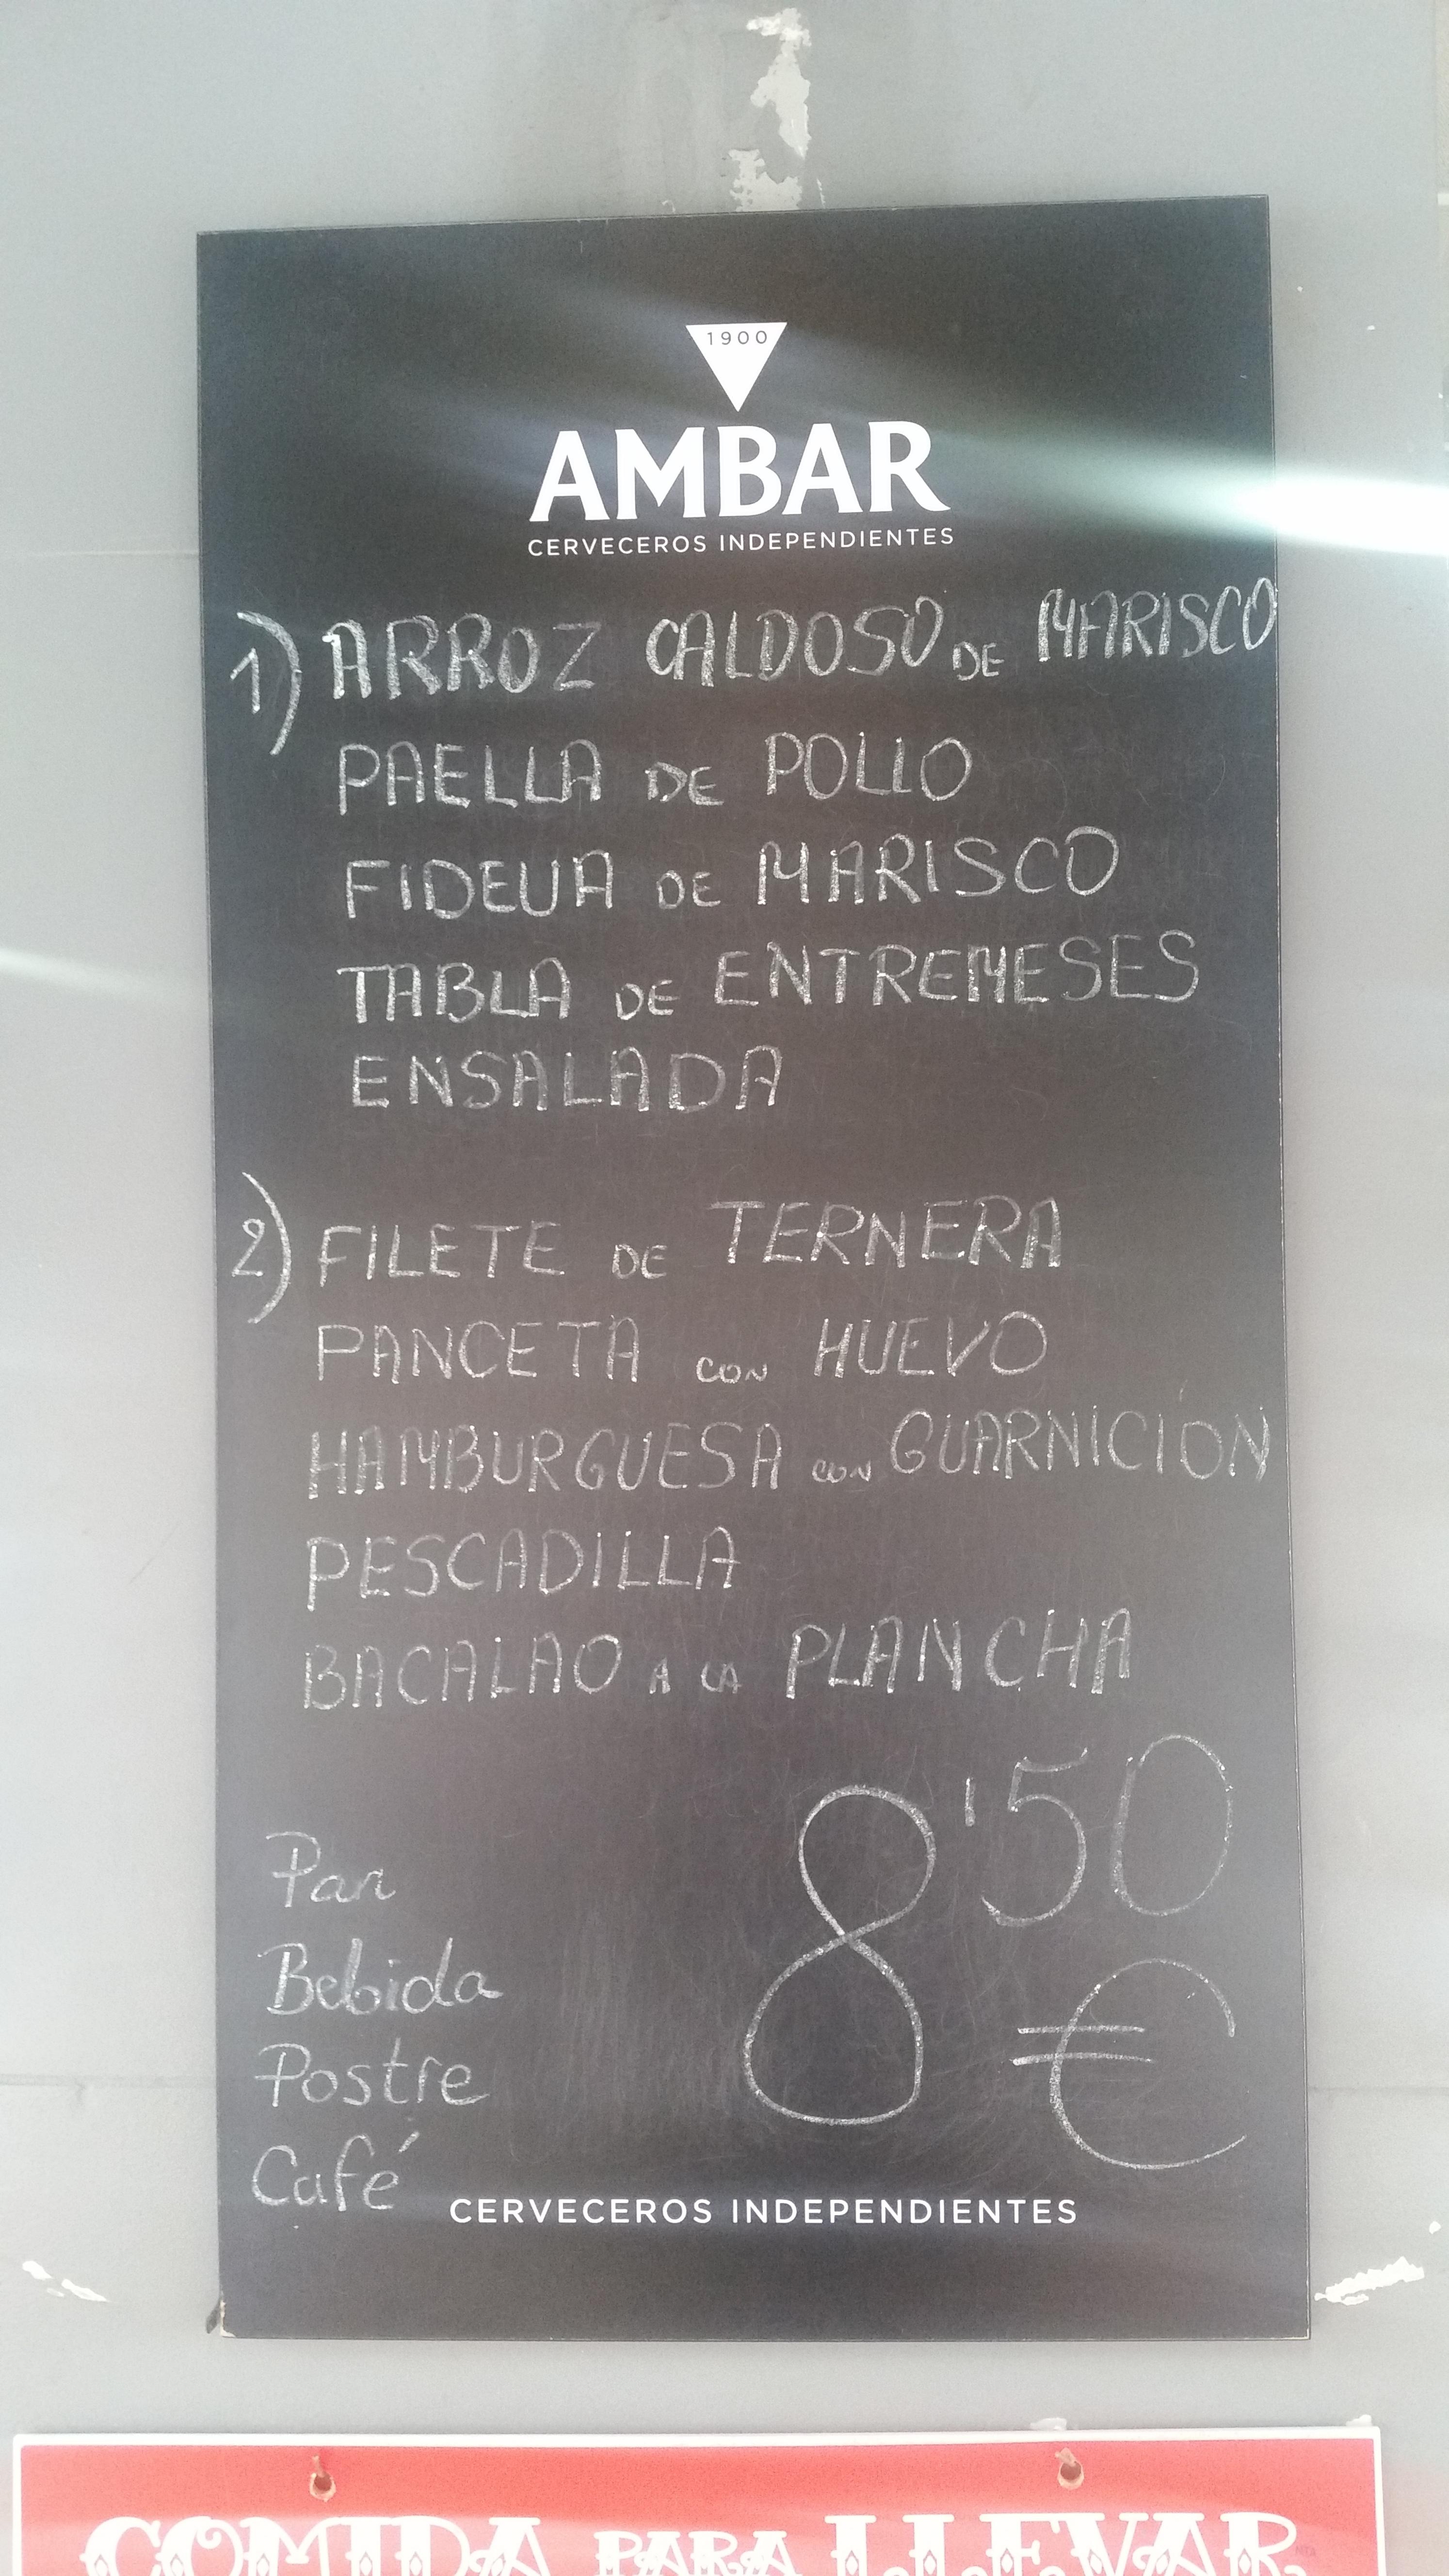 1900
AMBAR
CERVECEROS INDEPENDIENTES
1) ARROZ CALDOSO DE MARISCO
PAELLA DE POLLO
FIDEUA DE MARISCO
TABLA DE ENTREMESES
ENSALADA
2) FILETE DE TERNERA
PANCETA CON HUEVO
HAMBURGUESA CON GUARNICIÓN
PESCADILLA
BACALAO A LA PLANCHA
8'50
€
Pan
Bebida
Postre
Café
CERVECEROS INDEPENDIENTES
COMIDA PARA LLEVAR